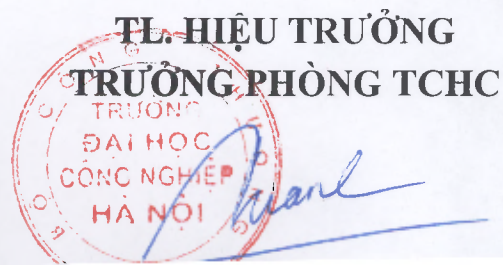 TL. HIỆU TRƯỞNG
TRƯỞNG PHÒNG TCHC
TRƯỜNG
ĐẠI HỌC
CÔNG NGHIỆP
HÀ NỘI